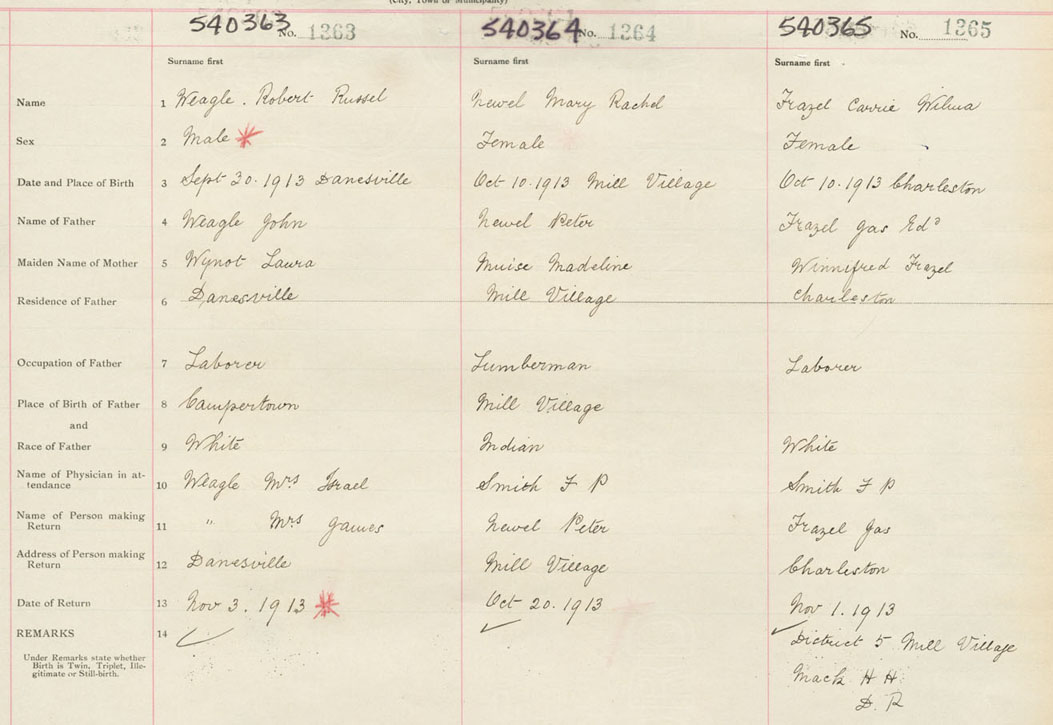 (City, Town or Municipality)
540363 No. 1363 540364 No. 1364 540365 No. 1365
Surname first Surname first Surname first
Name 1 Weagle. Robert Russel Newel Mary Rachel Frazel Carrie Wilma
Sex 2 Male Female Female
Date and Place of Birth 3 Sept 30. 1913 Danesville Oct 10. 1913 Mill Village Oct 10. 1913 Charleston
Name of Father 4 Weagle John Newel Peter Frazel Jas Edd
Maiden Name of Mother 5 Wynot Laura Muise Madeline Winnifred Frazel
Residence of Father 6 Danesville Mill Village Charleston
Occupation of Father 7 Laborer Lumberman Laborer
Place of Birth of Father 8 Campertown Mill Village
and
Race of Father 9 White Indian White
Name of Physician in at-
tendance 10 Weagle Mrs Israel Smith F P Smith F P
Name of Person making
Return 11 " Mrs James Newel Peter Frazel Jas
Address of Person making
Return 12 Danesville Mill Village Charleston
Date of Return 13 Nov 3. 1913 Oct 20. 1913 Nov 1. 1913
REMARKS 14
District 5 Mill Village
Under Remarks state whether
Birth is Twin, Triplet, Ille-
gitimate or Still-birth.
Mack H H.
D. R